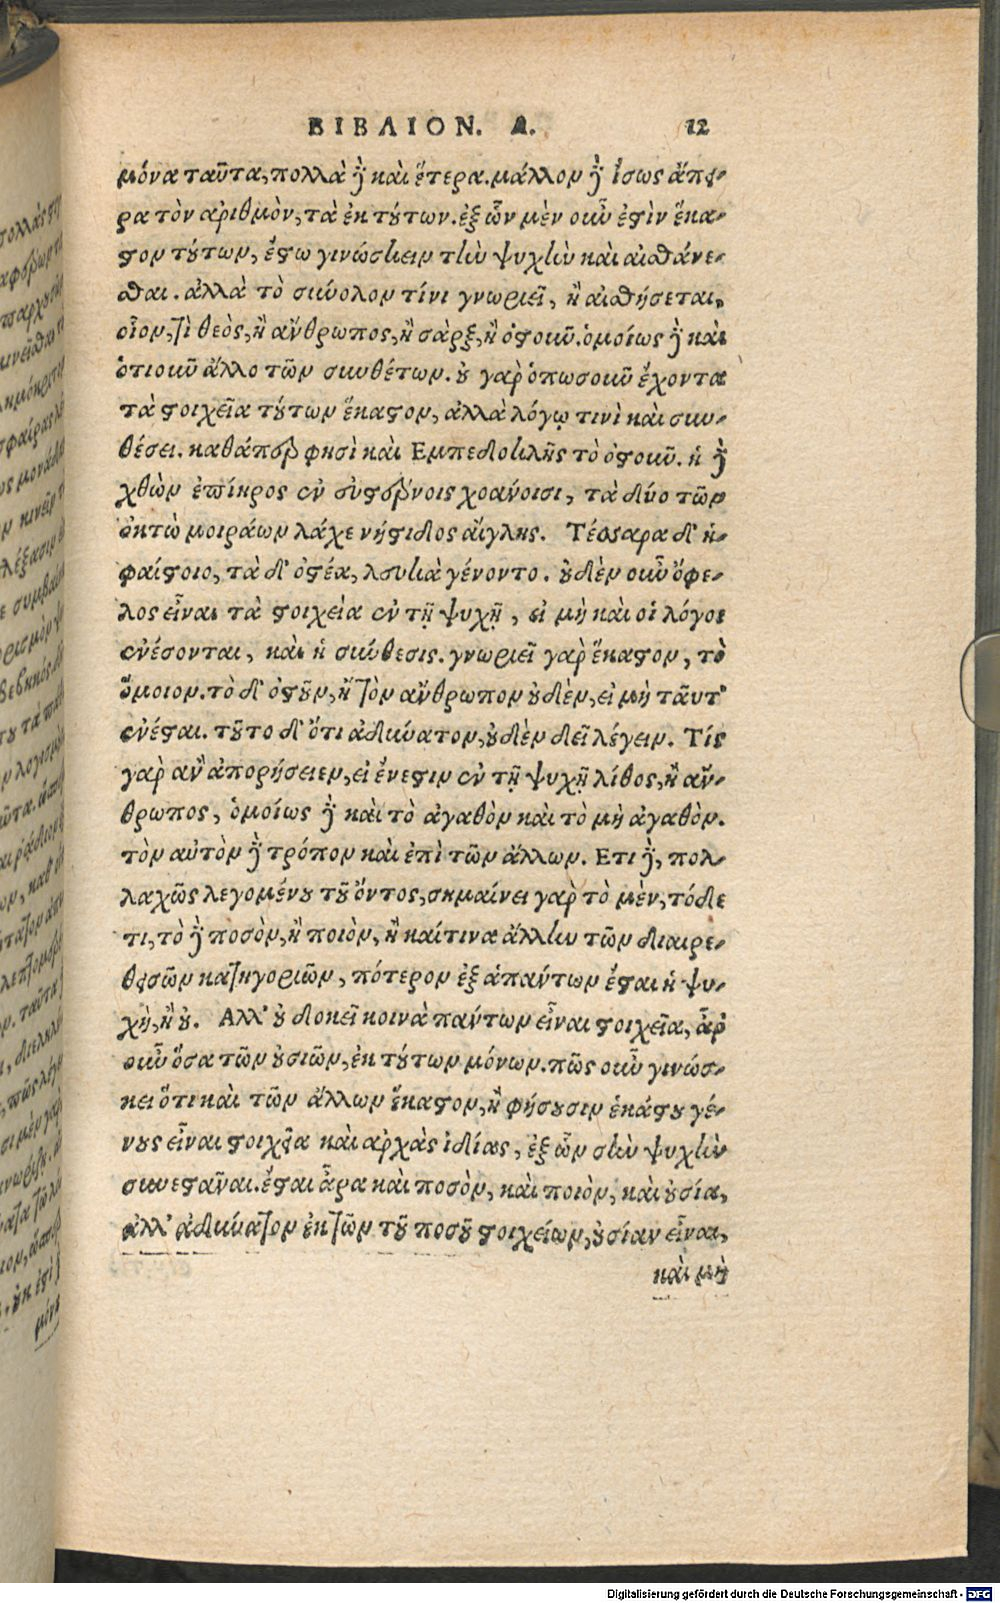 ΒΙΒΛΙΟΝ. Α. 12
μόνα ταῦτα, πολλὰ δὲ καὶ ἕτερα. μᾶλλον δὲ ἴσως ἄπει-
ρα τὸν ἀριθμὸν, τὰ ἐκ τούτων. ἐξ ὧν μὲν οὖν ἐστὶν ἕκα-
στον τούτων, ἔστω γινώσκειν τὴν ψυχὴν καὶ αἰσθάνε-
σθαι. ἀλλὰ τὸ σύνολον τίνι γνωριεῖ, ἢ αἰσθήσεται,
οἷον, τὶ θεὸς, ἢ ἄνθρωπος, ἢ σὰρξ, ἢ ὀστοῦν. ὁμοίως δὲ καὶ
ὁτιοῦν ἄλλο τῶν συνθέτων. οὐ γὰρ ὁπωσοῦν ἔχοντα
τὰ στοιχεῖα τούτων ἕκαστον, ἀλλὰ λόγῳ τινὶ καὶ συν-
θέσει. καθάπερ φησὶ καὶ Εμπεδοκλῆς τὸ ὀστοῦν. ἡ δὲ
χθὼν ἐπίηρος ἐν εὐστέρνοις χοάνοισι, τὰ δύο τῶν
ὀκτὼ μοιράων λάχε νήστιδος αἴγλης. Τέσσαρα δ' ἡ-
φαίστοιο, τὰ δ' ὀστέα, λευκὰ γένοντο. οὐδὲν οὖν ὄφε-
λος εἶναι τὰ στοιχεῖα ἐν τῇ ψυχῇ, εἰ μὴ καὶ οἱ λόγοι
ἐνέσονται, καὶ ἡ σύνθεσις. γνωριεῖ γὰρ ἕκαστον, τὸ
ὅμοιον. τὸ δ' ὀστοῦν, ἢ τὸν ἄνθρωπον οὐδὲν, εἰ μὴ ταῦτ'
ἐνέσται. τοῦτο δ' ὅτι ἀδύνατον, οὐδὲν δεῖ λέγειν. Τίς
γὰρ ἂν ἀπορήσειεν, εἰ ἔνεστιν ἐν τῇ ψυχῇ λίθος, ἢ ἄν-
θρωπος, ὁμοίως δὲ καὶ τὸ ἀγαθὸν καὶ τὸ μὴ ἀγαθὸν.
τὸν αὐτὸν δὲ τρόπον καὶ ἐπὶ τῶν ἄλλων. Ετι δὲ, πολ-
λαχῶς λεγομένου τοῦ ὄντος, σημαίνει γὰρ τὸ μὲν, τόδε
τι, τὸ δὲ ποσὸν, ἢ ποιὸν, ἢ καί τινα ἄλλην τῶν διαιρε-
θεισῶν κατηγοριῶν, πότερον ἐξ ἁπάντων ἔσται ἡ ψυ-
χὴ, ἢ οὔ. Αλλ' οὐ δοκεῖ κοινὰ πάντων εἶναι στοιχεῖα, ἆρ'
οὖν ὅσα τῶν οὐσιῶν, ἐκ τούτων μόνων. πῶς οὖν γινώσ-
κει ὅτι καὶ τῶν ἄλλων ἕκαστον, ἢ φήσουσιν ἑκάστου γέ-
νους εἶναι στοιχεῖα καὶ ἀρχὰς ἰδίας, ἐξ ὧν τὴν ψυχὴν
συνεστᾶναι. ἔσται ἆρα καὶ ποσὸν, καὶ ποιὸν, καὶ οὐσία,
ἀλλ' ἀδύνατον ἐκ τῶν τοῦ ποσοῦ στοιχείων, οὐσίαν εἶναι,
καὶ μὴ
Digitalisierung gefördert durch die Deutsche Forschungsgemeinschaft - DFG